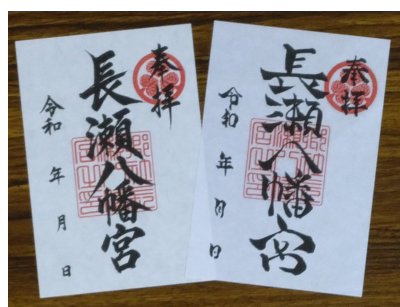 奉拝
長瀬八幡宮
令和 年 月 日
奉拝
長瀬八幡宮
令和 年 月 日